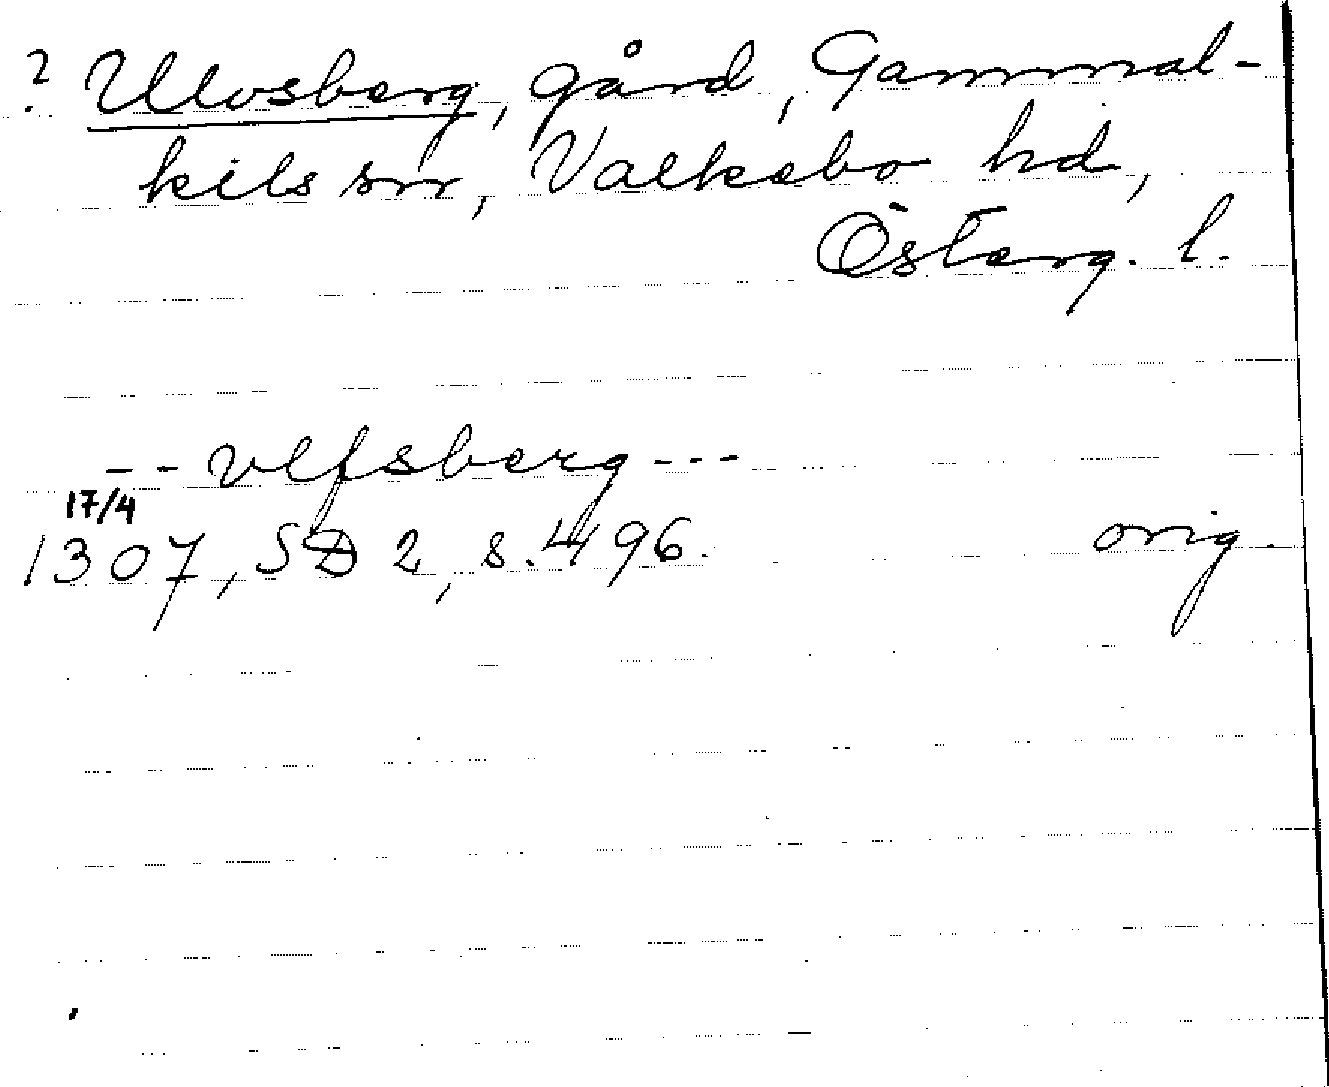 ? Ulvsberg, gård, Gammal-
kils sn, Valkebo hd,
Österg. l.
-- vlfsberg ---
17/4
1307, SD 2, s. 496. orig.